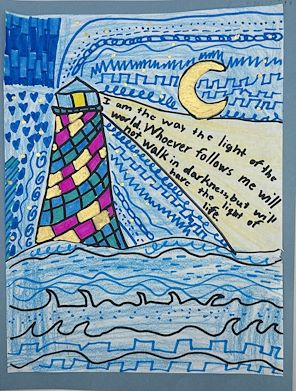 I am the way the light of the
world. Whoever follows me will
not walk in darkness, but will
have the light of
life.